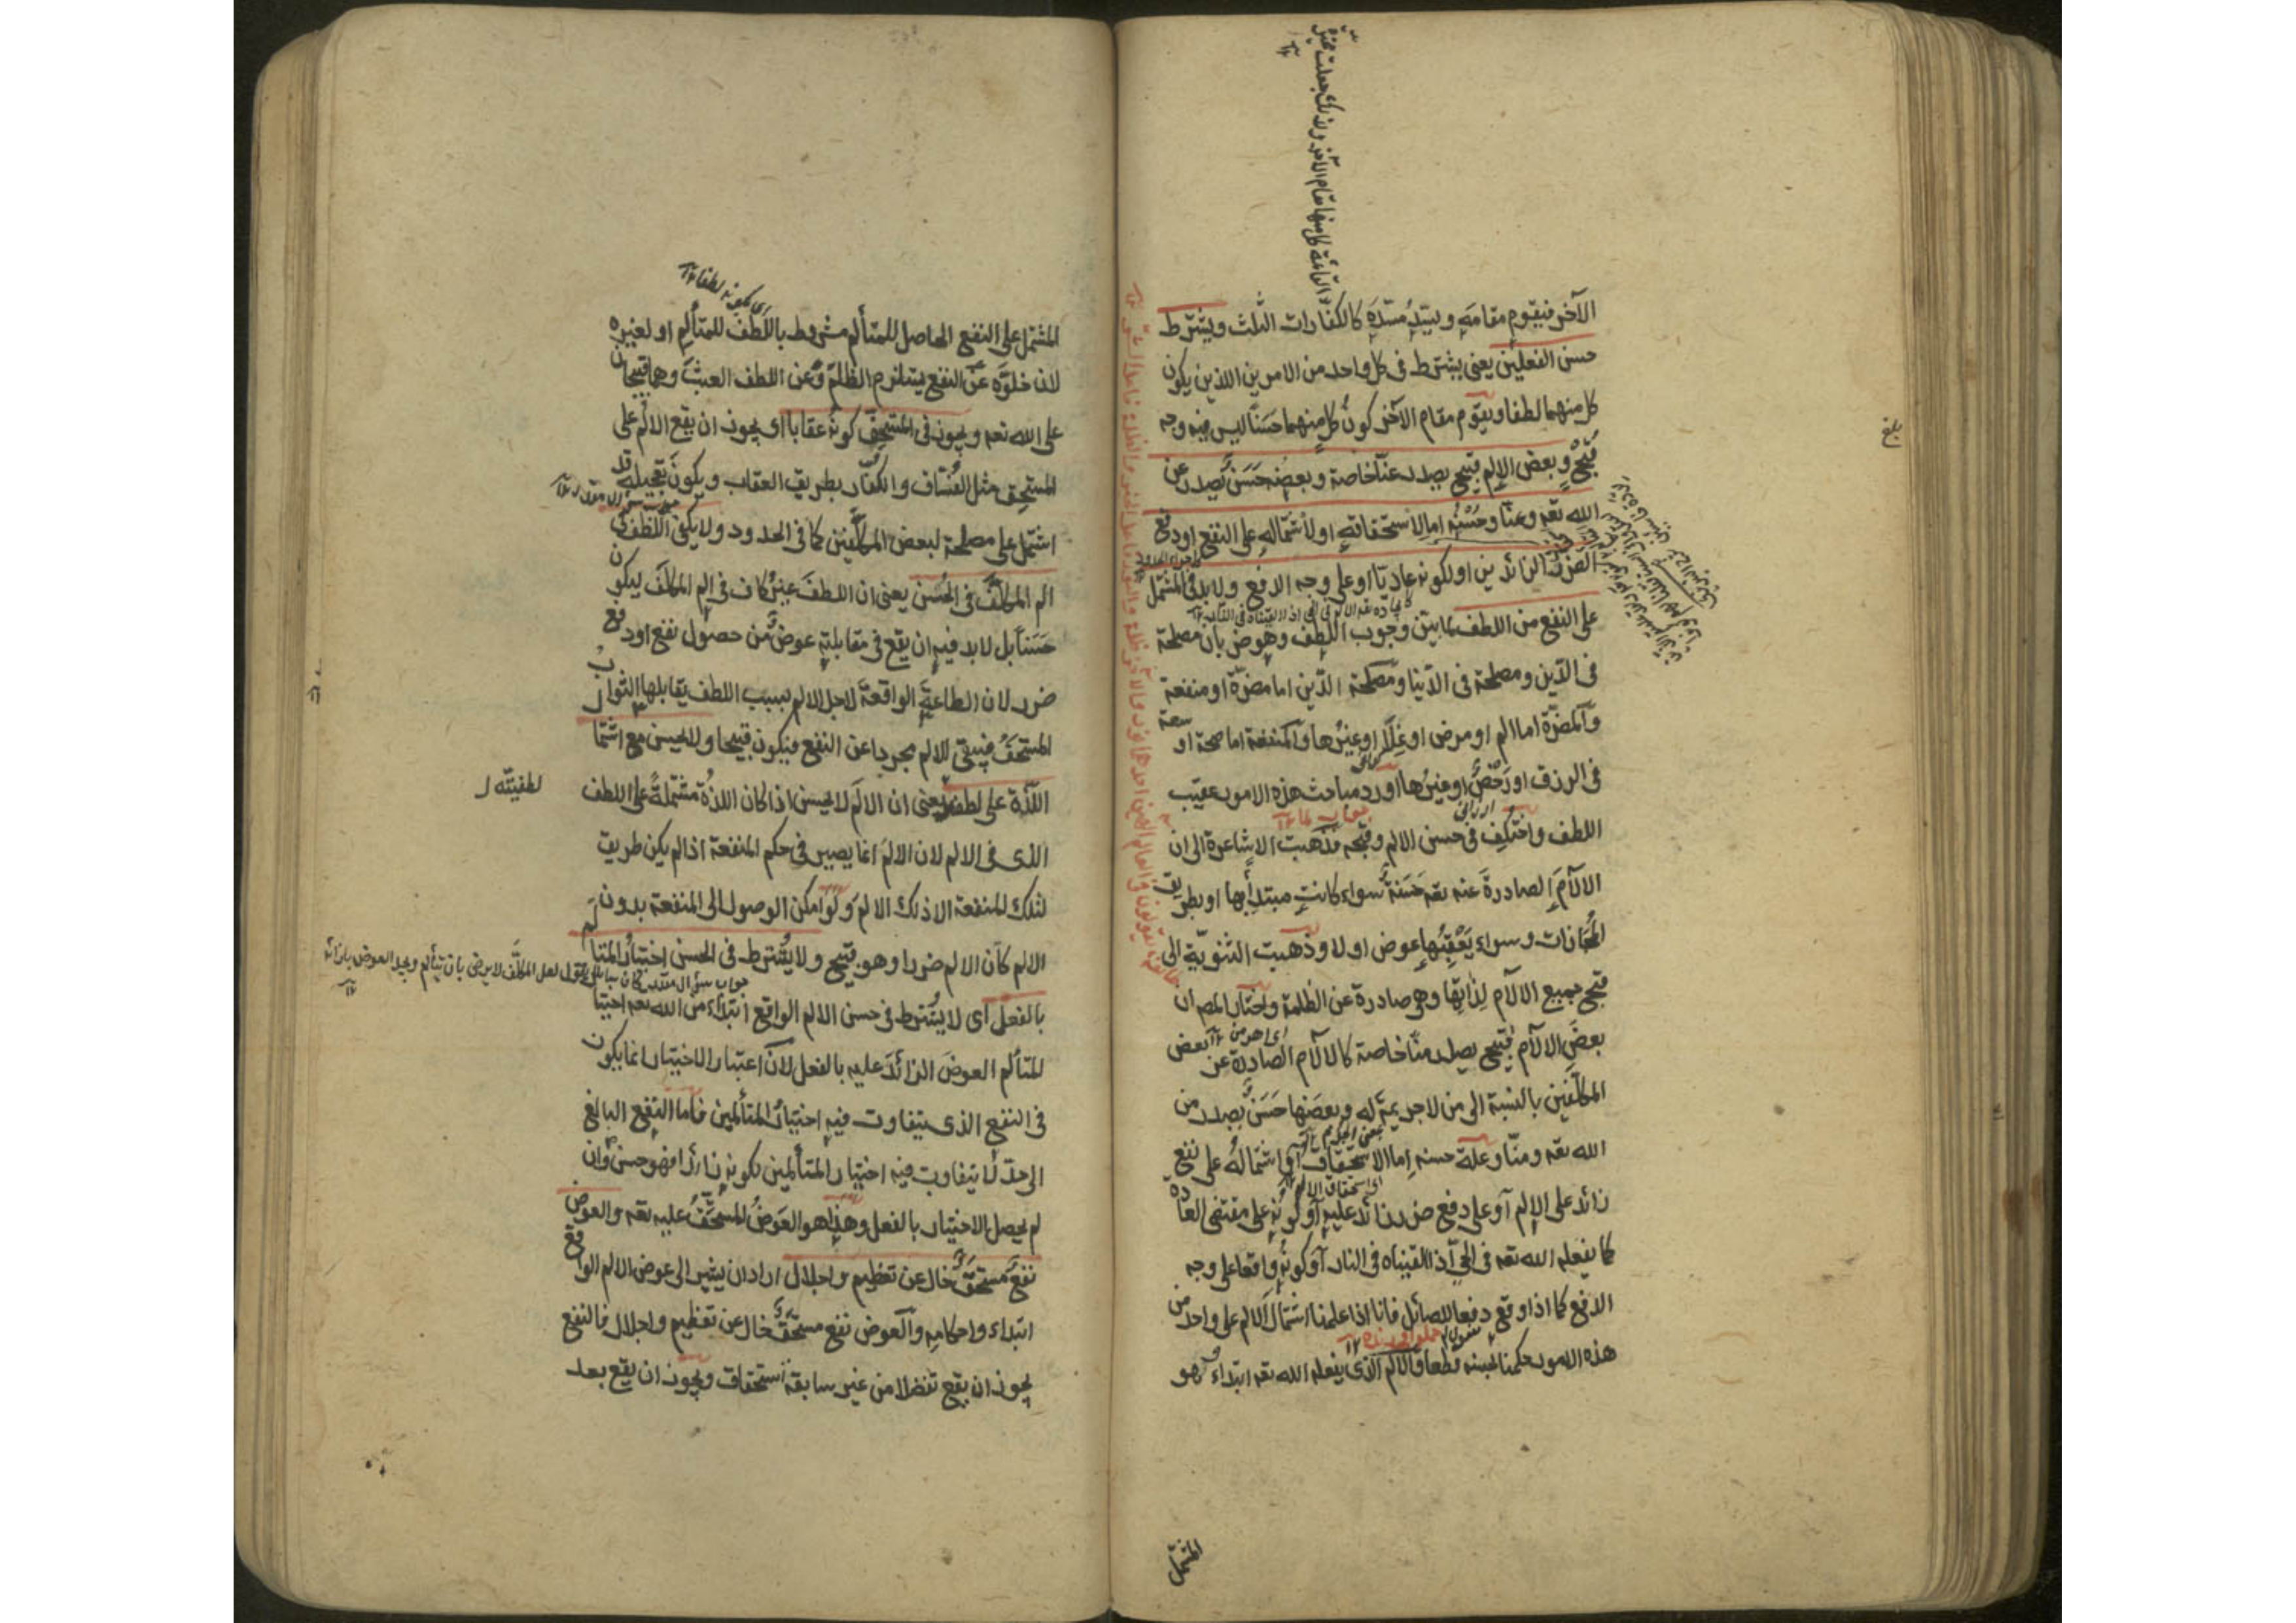 الآخر فيقوم مقامه ويسدّ مسدّه كالكفارات الثلث ويشترط
حسن الفعلين يعنى يشترط فى كل واحد من الامرين اللذين يكون
كل منهما لطفا ويقوم مقام الآخر كون كل منهما حسنا ليس فيه وجه
قبح وبعض الالم قبيح يصدر عنا خاصة وبعضه حسن يصدر عن
الله تعه وعنا وحسنه اما لاستحقاقه او لاشتماله على النفع او دفع
الضرر الزائدين او لكونه عاديا او على وجه الدفع ولا بد فى المشتمل
على النفع من اللطف لما بين وجوب اللطف وهو ضربان مصلحة
فى الدين ومصلحة فى الدنيا ومصلحة الدين اما مضرة او منفعة
والمضرة اما الم او مرض او غلاء او غيرها والمنفعة اما صحة او سعة
فى الرزق او رخص او غيرها اورد مباحث هذه الامور عقيب
اللطف واختلف فى حسن الالم وقبحه فذهبت الاشاعرة الى ان
الآلام الصادرة عنه تعه حسنة سواء كانت مبتدأ بها او بطريق
المجازات وسواء يعقبها عوض او لا وذهبت الثنوية الى
قبح جميع الآلام لذاتها وهى صادرة عن الظلمة واختار المص ان
بعض الآلام قبيح يصدر منا خاصة كالآلام الصادرة عن بعض
المكلفين بالنسبة الى من لا جريمة له وبعضها حسن يصدر من
الله تعه ومنا وعلة حسنه اما الاستحقاق او اشتماله على نفع
زائد على الالم او على دفع ضرر زائد عليه او كونه على مقتضى العادة
كما يفعله الله تعه فى الحى اذا القيناه فى النار او كونه واقعا على وجه
الدفع كما اذا وقع دفعا للصائل فانا اذا علمنا اشتمال الالم على واحد من
هذه الامور حكمنا بحسنه قطعا والالم الذى يفعله الله تعه ابتداء وهو
المشتمل
بلغ
اى بكونه لطفا ١٢
المشتمل على النفع الحاصل للمتألم مشروط باللطف للمتألم او لغيره
لان خلوه عن النفع يستلزم الظلم وعن اللطف العبث وهما قبيحان
على الله تعه ويجوز فى المستحق كونه عقابا اى يجوز ان يقع الالم على
المستحق مثل الفساق والكفار بطريق العقاب ويكون تعجيله قد
اشتمل على مصلحة لبعض المكلفين كما فى الحدود ولا يكفى اللطف فى
الم المكلف فى الحسن يعنى ان اللطف غير كاف فى الم المكلف ليكون
حسنا بل لا بد فيه ان يقع فى مقابلته عوض من حصول نفع او دفع
ضرر لان الطاعة الواقعة لاجل الالم بسبب اللطف يقابلها الثواب
المستحق فيبقى الالم مجردا عن النفع فيكون قبيحا ولا يحسن مع اشتمال
اللذة على لطفيته يعنى ان الالم لا يحسن اذا كان اللذة مشتملة على اللطف
لطفيته
الذى فى الالم لان الالم انما يصير فى حكم المنفعة اذا لم يكن طريق
لتلك المنفعة الا ذلك الالم ولو امكن الوصول الى المنفعة بدون
الالم كان الالم ضررا وهو قبيح ولا يشترط فى الحسن اختيار المتألم
بالفعل اى لا يشترط فى حسن الالم الواقع ابتداء من الله تعه اختيار
المتألم العوض الزائد عليه بالفعل لان اعتبار الاختيار انما يكون
فى النفع الذى يتفاوت فيه اختيار المتألمين فاما النفع البالغ
الى حد لا يتفاوت فيه اختيار المتألمين لكونه زائدا فهو حسن وان
لم يحصل الاختيار بالفعل وهذا هو العوض المستحق عليه تعه والعوض
نفع مستحق خال عن تعظيم واجلال اراد ان يشير الى عوض الالم الواقع
ابتداء واحكامه والعوض نفع مستحق خال عن تعظيم واجلال فالنفع
يجوز ان يقع تفضلا من غير سابقة استحقاق ويجوز ان يقع بعد